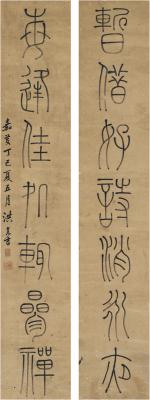 暫借好詩消永夜
每逢佳処輒參禪
嘉慶丁巳夏五月洪亮吉